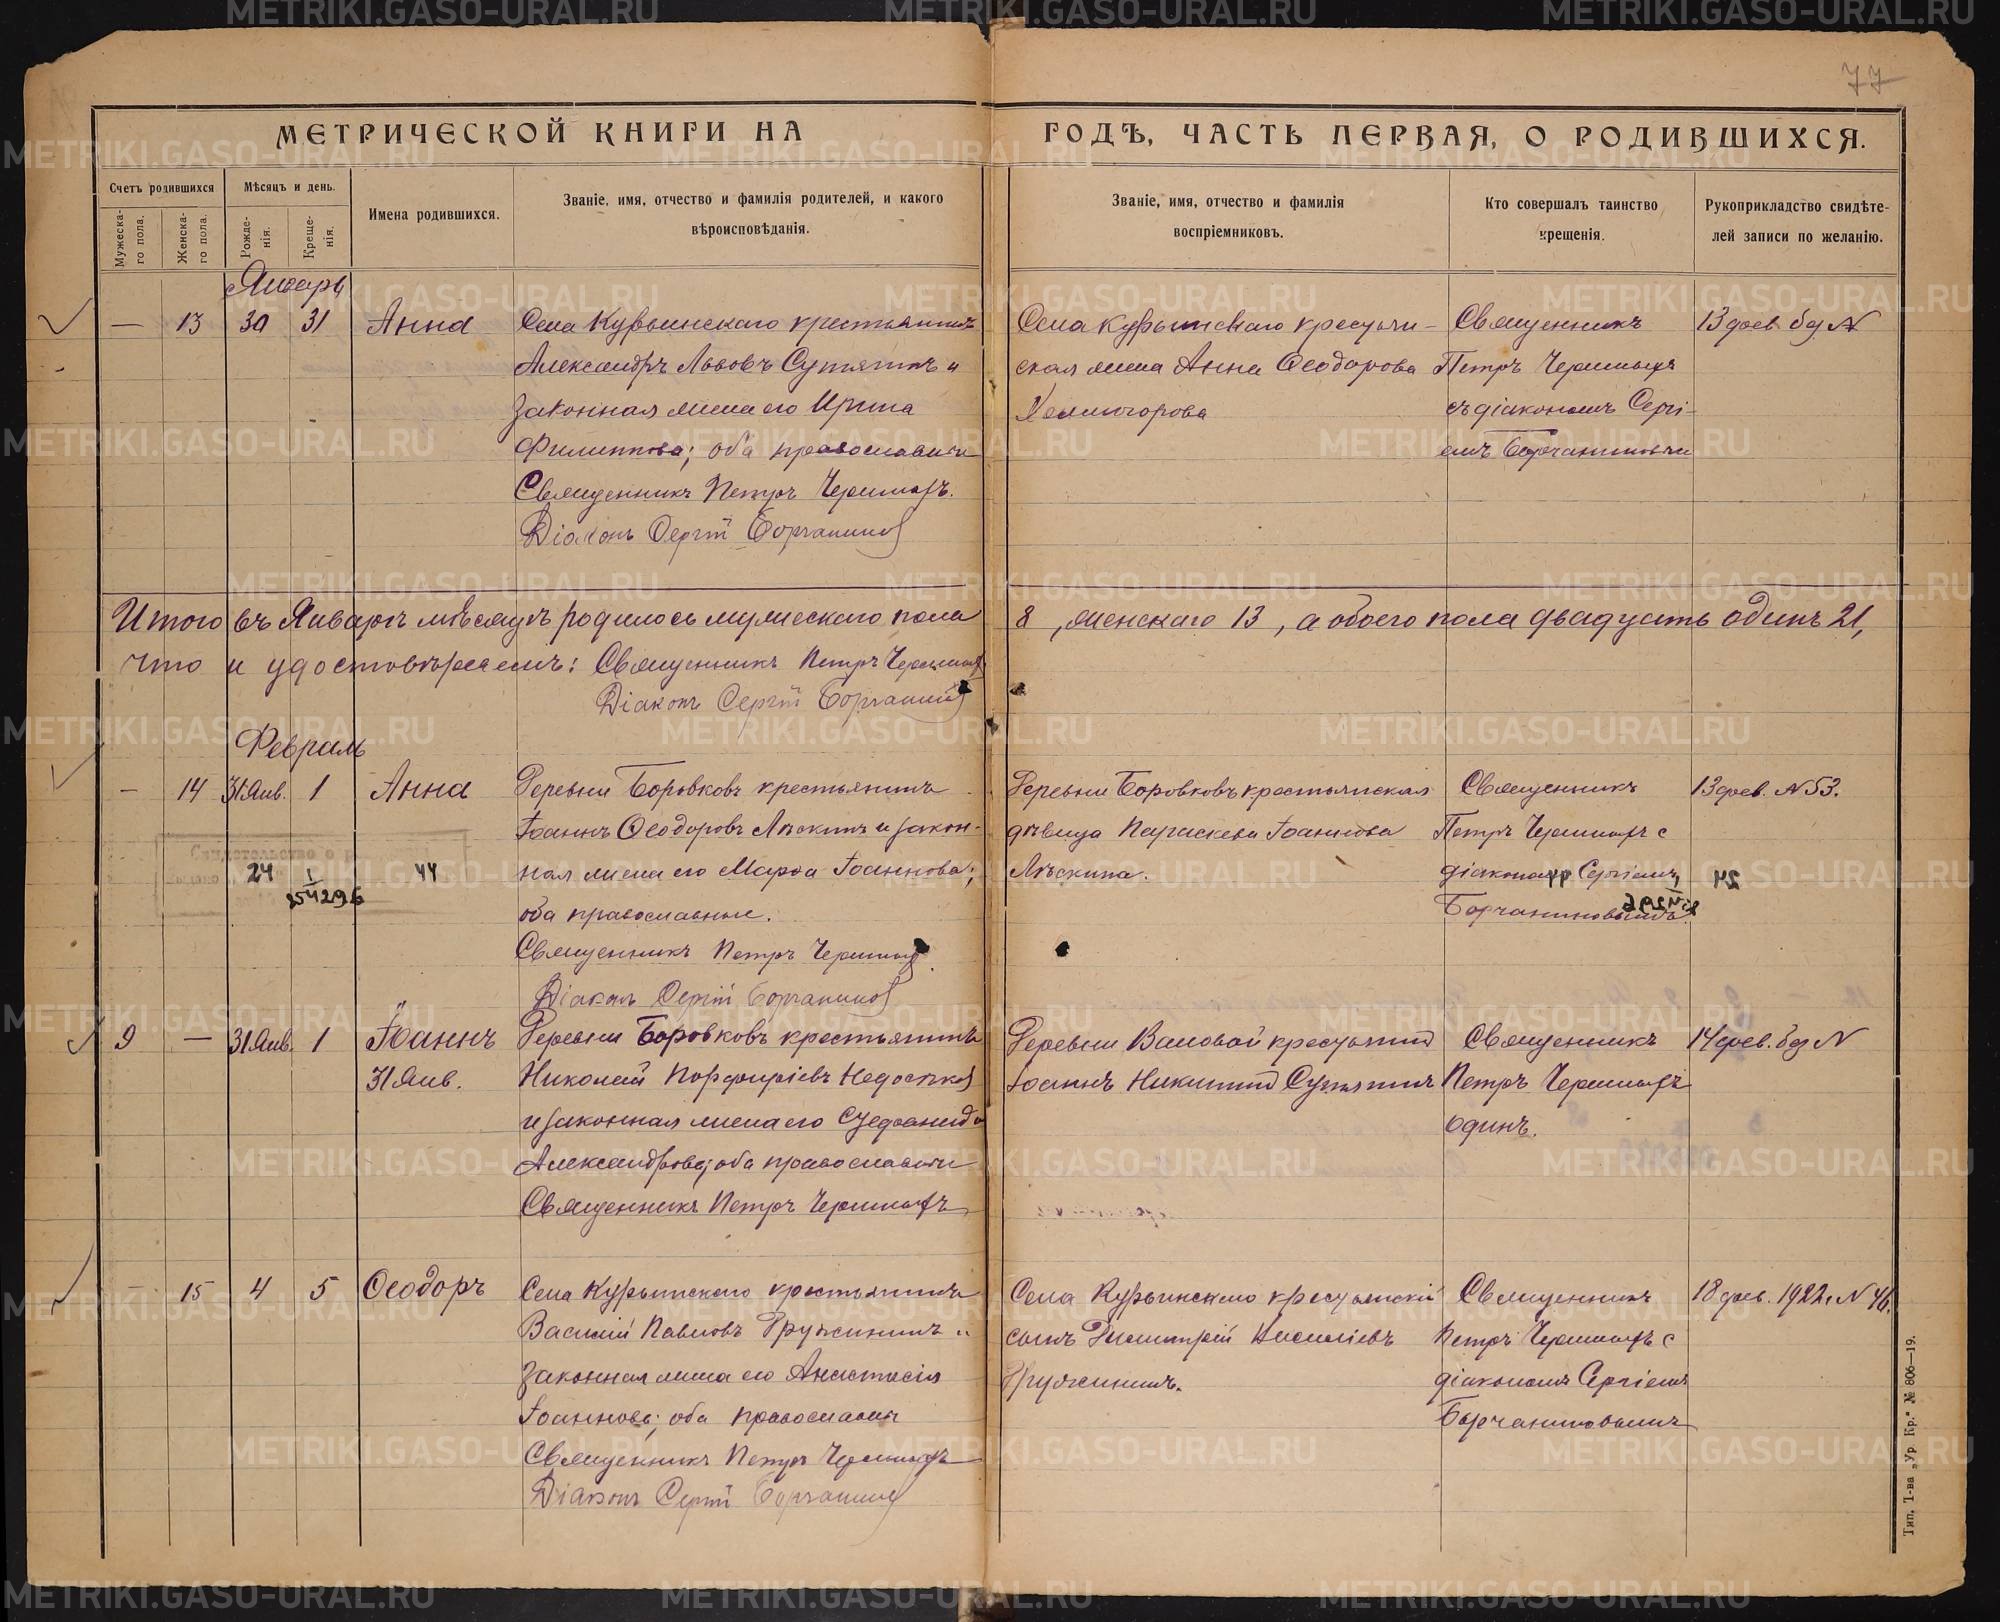 77
МЕТРИЧЕСКОЙ КНИГИ НА ГОДЪ, ЧАСТЬ ПЕРВАЯ, О РОДИВШИХСЯ.
Счетъ родившихся
Мужеска-го пола.
Женска-го пола.
Мѣсяцъ и день.
Рожде-нія.
Креще-нія.
Имена родившихся.
Званіе, имя, отчество и фамилія родителей, и какого
вѣроисповѣданія.
Званіе, имя, отчество и фамилія
воспріемниковъ.
Кто совершалъ таинство
крещенія.
Рукоприкладство свидѣте-
лей записи по желанію.
Январь
— 13 30 31 Анна
Села Курьинскаго крестьянинъ
Александръ Львовъ Сутягинъ и
законная жена его Ирина
Филиппова; оба православные
Священникъ Петръ Черемныхъ.
Діаконъ Сергій Борчанинов
Села Курьинскаго крестьян-
ская жена Анна Ѳеодорова
Холмогорова
Священникъ
Петръ Черемныхъ
съ діакономъ Сергі-
емъ Борчаниновым
13 фев. без N
Итого въ Январѣ мѣсяцѣ родилось мужескаго пола 8, женскаго 13, а обоего пола двадцать одинъ 21,
что и удостовѣряемъ: Священникъ Петръ Черемных
Діаконъ Сергій Борчанинов
Февраль
— 14 31 Янв. 1 Анна
Деревни Боровковъ крестьянинъ
Іоаннъ Ѳеодоровъ Лѣскинъ и закон-
ная жена его Марѳа Іоаннова;
оба православные.
Священникъ Петръ Черемных.
Діаконъ Сергій Борчанинов
Деревни Боровковъ крестьянская
дѣвица Параскева Іоаннова
Лѣскина.
Священникъ
Петръ Черемныхъ с
діакономъ Сергіемъ
Борчаниновымъ.
13 фев. N 53.
Свидетельство о
24
44
9 — 31 Янв. 1 Іоаннъ
31 Янв.
Деревни Боровковъ крестьянинъ
Николай Порфиріевъ
и законная жена его
Александрова; оба православные
Священникъ Петръ Черемныхъ
Деревни крестьянин
Іоаннъ Сутягин
Священникъ
Петръ Черемныхъ
одинъ.
14 фев. без N
— 15 4 5 Ѳеодоръ
Села Курьинскаго крестьянинъ
Василій Павловъ Гружининъ и
законная жена его Анастасія
Іоаннова; оба православн
Священникъ Петръ Черемныхъ
Діаконъ Сергій Борчанинов
Села Курьинскаго крестьянскій
сынъ Димитрій Василіевъ
Гружининъ.
Священникъ
Петръ Черемныхъ с
діакономъ Сергіемъ
Борчаниновымъ
18 фев. 1922 г. N 46.
Тип. Т-ва „Ур. Кр.“ № 806—19.
METRIKI.GASO-URAL.RU